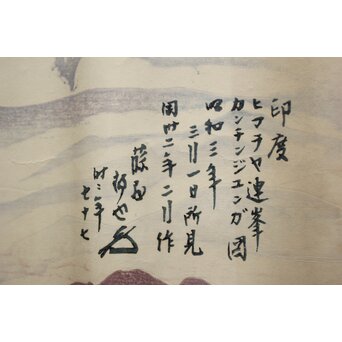 印度
ヒマラヤ連峯
カンチンジユンガ図
昭和三年
三月一日所見
同廿二年二月作
藤
時二年
七十七